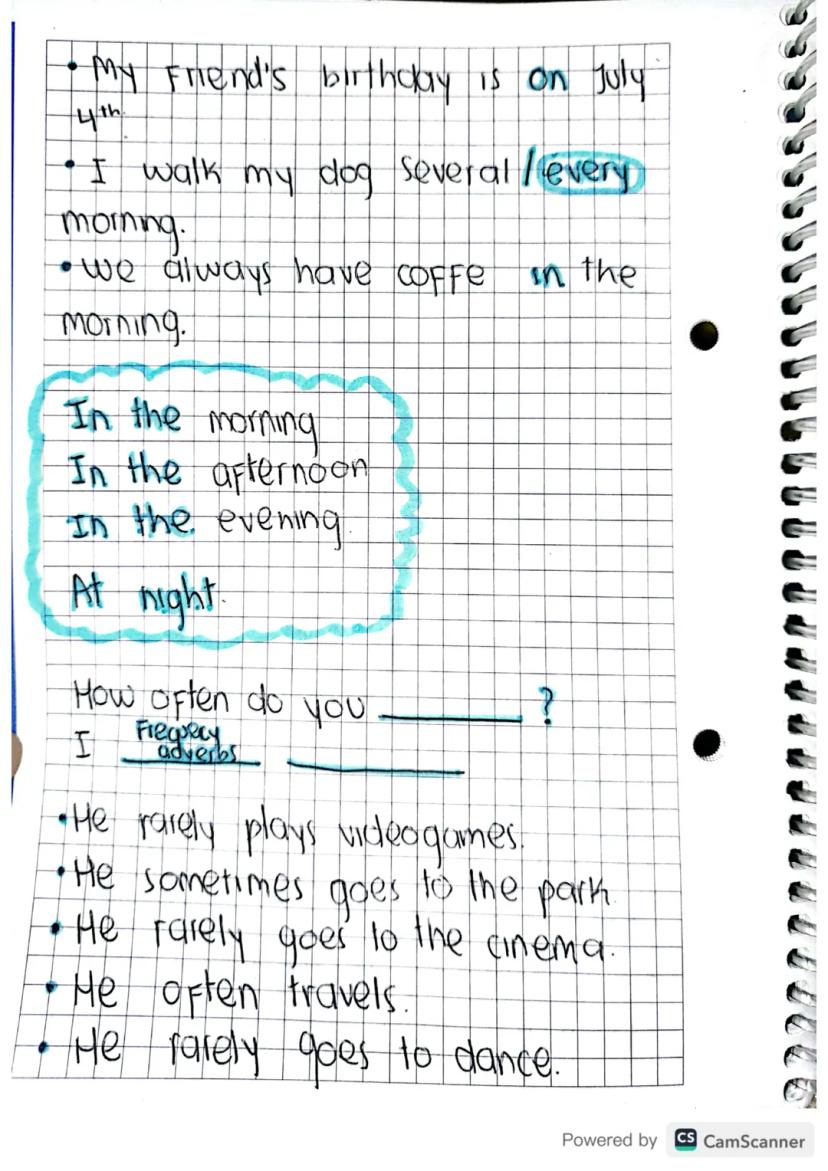 • My Friend's birthday is on July
4th.
• I walk my dog several / every
morning.
• We always have coffe in the
morning.
In the morning
In the afternoon
In the evening.
At night.
How often do you ________ ?
I Frequecy adverbs ________
• He rarely plays videogames.
• He sometimes goes to the park.
• He rarely goes to the cinema.
• He often travels.
• He rarely goes to dance.
Powered by CS CamScanner